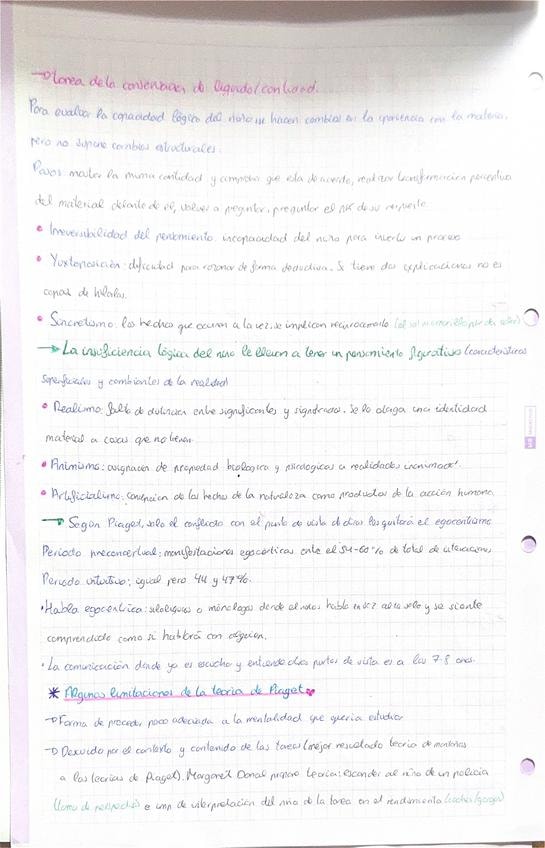 →Tarea de la conservación de líquido/cantidad.
Para evaluar la capacidad lógica del niño se hacen cambios en la apariencia con la materia,
pero no supone cambios estructurales.
Pasos: mostrar la misma cantidad y comprobar que está de acuerdo, realizar transformación perceptiva
del material delante de él, volver a preguntar, preguntar el pk de su respuesta
• Irreversibilidad del pensamiento: incapacidad del niño para invertir un proceso
• Yuxtaposición: dificultad para razonar de forma deductiva. Si tiene dos explicaciones no es
capaz de hilarlas.
• Sincretismo: los hechos que ocurren a la vez se implican recíprocamente (el sol
→La insuficiencia lógica del niño le llevan a tener un pensamiento figurativo (características
superficiales y cambiantes de la realidad)
• Realismo: falta de distinción entre significantes y significados. Se lo otorga una identidad
material a cosas que no tienen.
• Animismo: asignación de propiedad biológica y psicológicas a realidades inanimadas.
• Artificialismo: concepción de los hechos de la naturaleza como productos de la acción humana.
→ Según Piaget, solo el conflicto con el punto de vista de otros les quitará el egocentrismo
Periodo preconceptual: manifestaciones egocéntricas entre el 54-60% de total de interacciones
Periodo intuitivo: igual pero 44 y 47%.
• Habla egocéntrica: soliloquios o monólogos donde el niño habla en voz alta solo y se siente
comprendido como si hablara con alguien.
• La comunicación donde ya es escucha y entiende otros puntos de vista es a los 7-8 años.
* Algunas limitaciones de la teoría de Piaget
→ Forma de proceder poco adecuada a la mentalidad que quería estudiar
→ Descuido por el contexto y contenido de las tareas (mejor resultado teoría de montañas
a las teorías de Piaget). Margaret Donal propuso teoría: esconder al niño de un policía
(toma de perspectiva) e imp de interpretación del niño de la tarea en el rendimiento (coches/garajes)